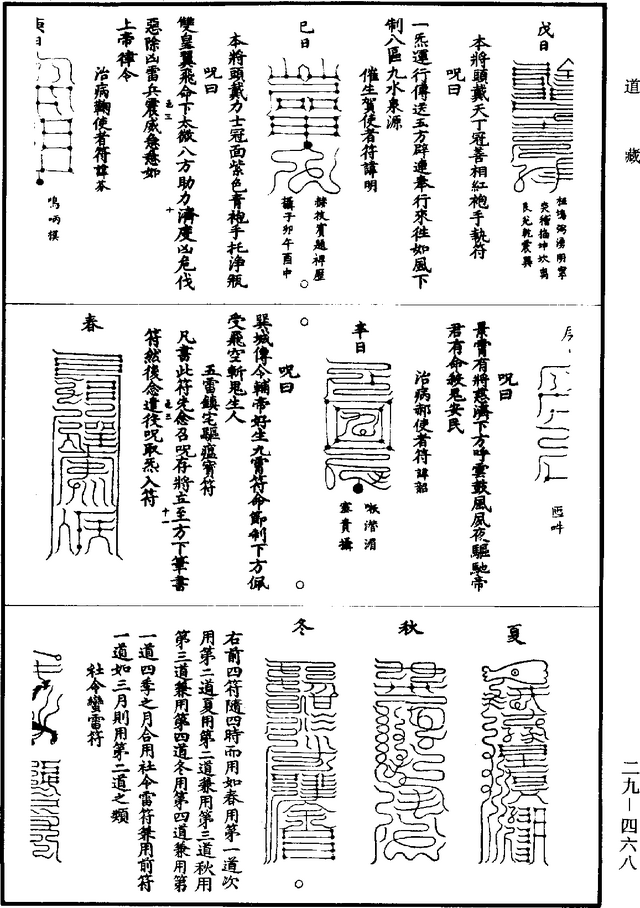 道藏
戊日
本將頭戴天丁冠善相紅袍手執符
呪曰
一炁運行傳送五方辟連奉行來往如風下
制八區九水東源
催生賀使者符諱明
巳日
攝子卯午酉中
本將頭戴力士冠面紫色青袍手托淨瓶
呪曰
雙皇翼飛命下太微八方助力濟度凶危伐
惡除凶雷兵震威急急如
上帝律令
治病鞠使者符諱芬
庚日
鳴丙攝
呪曰
景霄有將慈濟下方呼雲鼓風夙夜驅馳帝
君有命救鬼安民
治病郝使者符諱韶
辛日
呪曰
巽城傳令輔帝好生九霄符命節制下方佩
受飛空斬鬼生人
五雷鎮宅驅瘟實符
凡書此符先念召呪存將立至方下筆書
符然後念遣後呪取炁入符
春
夏
秋
冬
右前四符隨四時而用如春用第一道次
用第二道夏用第二道兼用第三道秋用
第三道兼用第四道冬用第四道兼用第
一道四季之月合用社令雷符兼用前符
一道如三月則用第二道之類
社令蠻雷符
二九—四六八